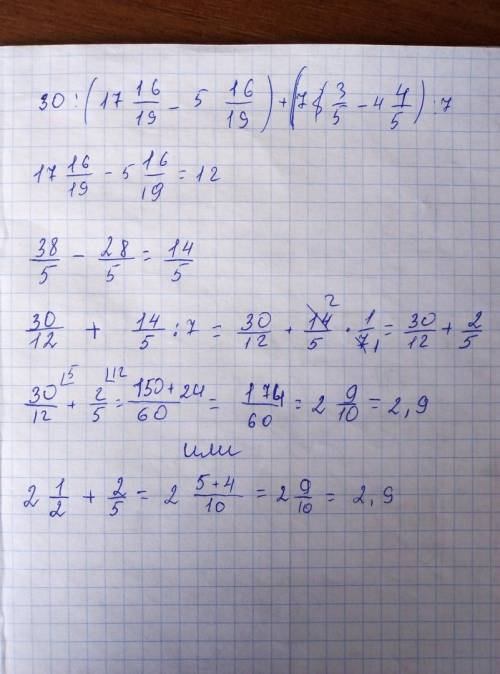 30 : (17 16/19 - 5 16/19) + (7 3/5 - 4 4/5) : 7
17 16/19 - 5 16/19 = 12
38/5 - 28/5 = 14/5
30/12 + 14/5 : 7 = 30/12 + 14/5 · 1/7 = 30/12 + 2/5 2 1
30/12 + 2/5 = 150+24/60 = 174/60 = 2 9/10 = 2,9 5 12
или
2 1/2 + 2/5 = 2 5+4/10 = 2 9/10 = 2,9